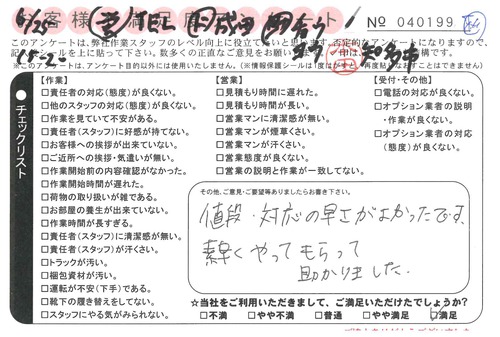 6/25
No 040199
このアンケートは、弊社作業スタッフのレベル向上に役立てたいと思います。否定的なアンケートになりますので、
※このアンケートは、アンケート目的以外には使用いたしません。
チェックリスト
【作業】
□責任者の対応(態度)が良くない。
□他のスタッフの対応(態度)が良くない。
□作業を見ていて不安がある。
□責任者(スタッフ)に好感が持てない。
□お客様への挨拶が出来ていない。
□ご近所への挨拶・気遣いが無い。
□作業開始前の内容確認がなかった。
□作業開始時間が遅れた。
□荷物の取り扱いが雑である。
□お部屋の養生が出来ていない。
□作業時間が長すぎる。
□責任者(スタッフ)に清潔感が無い。
□責任者(スタッフ)が汗くさい。
□トラックが汚い。
□梱包資材が汚い。
□運転が不安(下手)である。
□靴下の履き替えをしてない。
□スタッフにやる気がみられない。
【営業】
□見積もり時間に遅れた。
□見積もり時間が長い。
□営業マンに清潔感が無い。
□営業マンが煙草くさい。
□営業マンが汗くさい。
□営業態度が良くない。
□営業の説明と作業が一致してない。
【受付・その他】
□電話の対応が良くない。
□オプション業者の説明
・作業が良くない。
□オプション業者の対応
(態度)が良くない。
その他、ご意見・ご要望等ありましたらお書き下さい。
値段・対応の早さがよかったです。
素早くやってもらって
助かりました。
☆当社をご利用いただきまして、ご満足いただけたでしょうか?
□不満 □やや不満 □普通 □やや満足 □満足